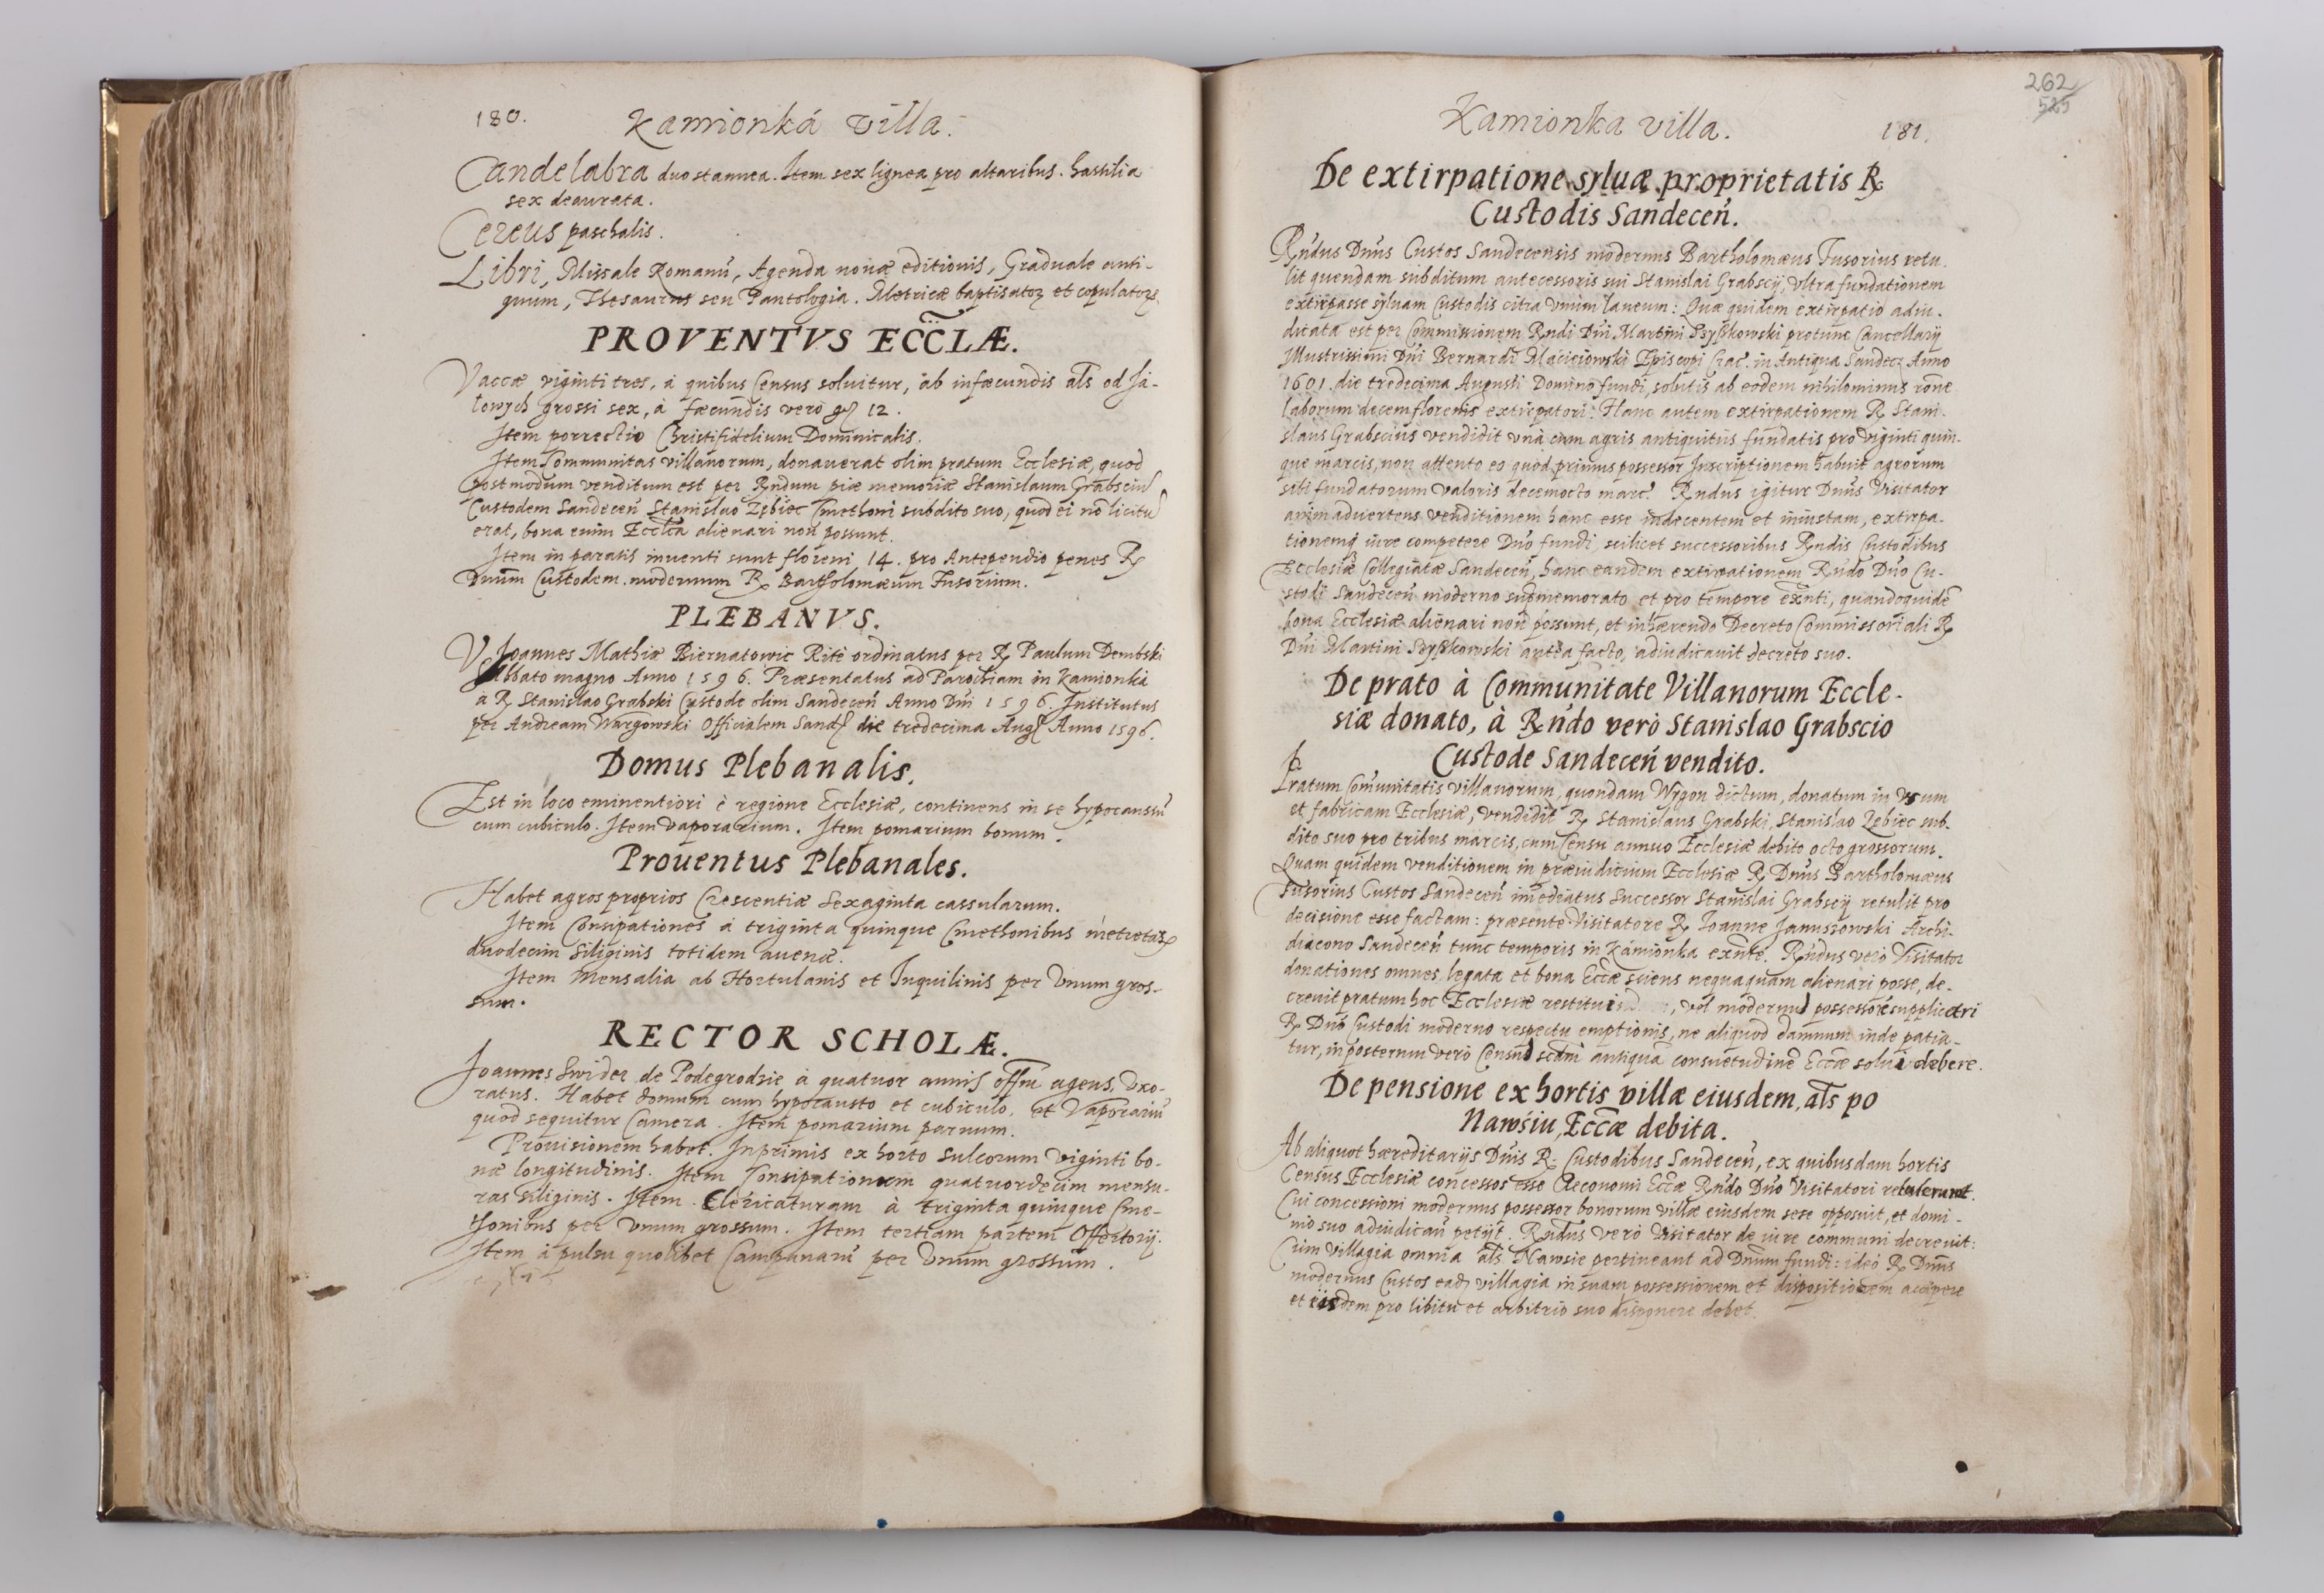 180. Kamionká Villa.
Candelabra duo stannea. Item sex lignea pro altaribus. hastilia
sex deaurata.
Cereus paschalis.
Libri, Missale Romanū, Agenda nouæ editionis, Graduale anti-
quum, Thesaurus seu Pantologia. Metricæ baptisatoꝝ et copulatoꝝ.
PROVENTVS ECCLÆ.
Vaccæ viginti tres, à quibus Census soluitur, ab infœcundis als od Já-
lowych grossi sex, à fœcundis verò gr 12.
Item porrectio Christifidelium Dominicalis.
Item Communitas villanorum, donauerat olim pratum Ecclesiæ, quod
postmodum venditum est per Rndum piæ memoriæ Stanislaum Grabsciū
Custodem Sandeceń Stanislao Zębiec Cmethoni subdito suo, quod ei nō licitū
erat, bona enim Eccła alienari non possunt.
Item in paratis inuenti sunt floreni 14. pro Antependio penes R
Dnum Custodem modernum R Bartholomæum Fusorium.
PLEBANVS.
V Joannes Mathiæ Biernatowic Ritè ordinatus per R Paulum Dembski
Sabbato magno Anno 1596. Præsentatus ad Parochiam in Kamionka
à R Stanislao Grabski Custode olim Sandeceń Anno Dni 1596. Institutus
per Andream Wargowski Officialem Sand die tredecima Aug Anno 1596.
Domus Plebanalis.
Est in loco eminentiori è regione Ecclesiæ, continens in se hypocaustū
cum cubiculo. Item vaporarium. Item pomarium bonum.
Prouentus Plebanales.
Habet agros proprios Crescentiæ Sexaginta cassularum.
Item Consipationes à triginta quinque Cmethonibus metretas
duodecim Siliginis totidem auenæ.
Item Mensalia ab Hortulanis et Inquilinis per Vnum gros-
sum.
RECTOR SCHOLÆ.
Joannes Swider de Podegrodzie à quatuor annis offm agens, Vxo-
ratus. Habet domum cum hypocausto et cubiculo, et Vaporariū
quod sequitur Camera. Item pomarium paruum.
Prouisionem habet. Inprimis ex horto Sulcorum Viginti bo-
næ longitudinis. Item Consipationum quatuordecim mensu-
ras Siliginis. Item Clericaturam à triginta quinque Cme-
thonibus per Vnum grossum. Item tertiam partem Offertorij.
Item à pulsu quolibet Campanarū per Vnum grossum.
262
525
Kamionka villa. 181.
De extirpatione syluæ proprietatis R
Custodis Sandeceń.
Rndus Dnus Custos Sandecensis modernus Bartholomæus Fusorius retu-
lit quendam subditum antecessoris sui Stanislai Grabscij, vltra fundationem
extirpasse syluam Custodis citra vnum laneum: Quæ quidem extirpatio adiu-
dicata est per Commissionem Rndi Dni Martini Szyszkowski protunc Cancellarij
Illustrissimi Dni Bernardi Macieiowski Episcopi Crac. in Antiqua Sandecz Anno
1601. die tredecima Augusti Domino fundi, solutis ab eodem nihilominus rone
laborum decem florenis extirpatori: Hanc autem extirpationem R Stani-
slaus Grabscius vendidit vnà cum agris antiquitùs fundatis pro viginti quin-
que marcis, non attento eo quòd primus possessor Inscriptionem habuit agrorum
sibi fundatorum valoris decemocto marc. Rndus igitur Dnus Visitator
animaduertens venditionem hanc esse indecentem et iniustam, extirpa-
tionemq iure competere Dno fundi, scilicet successoribus Rndis Custodibus
Ecclesiæ Collegiatæ Sandeceń, hanc eandem extirpationem Rndo Dno Cu-
stodi Sandeceń moderno supmemorato et pro tempore exnti, quandoquidē
bona Ecclesiæ alienari non possunt, et inhærendo Decreto Commissoriali R
Dni Martini Szyszkowski antea facto, adiudicauit decreto suo.
De prato à Communitate Villanorum Eccle-
siæ donato, à Rndo verò Stanislao Grabscio
Custode Sandeceń vendito.
Pratum Comunitatis villanorum, quondam Wygon dictum, donatum in Vsum
et fabricam Ecclesiæ, vendidit R Stanislaus Grabski, Stanislao Zębiec sub-
dito suo pro tribus marcis, cum Censu annuo Ecclesiæ debito octo grossorum.
Quam quidem venditionem in præiudicium Ecclesiæ R Dnus Bartholomæus
Fusorius Custos Sandeceń imediatus Successor Stanislai Grabscij retulit pro
decisione esse factam: præsente Visitatore R Joanne Januszowski Archi-
diacono Sandeceń tunc temporis in Kamionka exnte. Rndus verò Visitator
donationes omnes legata et bona Eccæ sciens nequaquam alienari posse, de-
creuit pratum hoc Ecclesiæ restitui , vel modernū possessorē supplicatri
R Dno Custodi moderno respectu emptionis, ne aliquod damnum inde patia-
tur, inposterum verò Censū scdm antiquā consuetudinē Eccæ solui debere.
De pensione ex hortis villæ eiusdem, als po
Nawśiu, Eccæ debita.
Ab aliquot hæreditarijs Dnis R. Custodibus Sandeceń, ex quibusdam hortis
Census Ecclesiæ concessos esse Oeconomi Eccæ Rndo Dno Visitatori retulerunt.
Cui concessioni modernus possessor bonorum villæ eiusdem sese opposuit, et domi-
nio suo adiudicari petijt. Rndus verò Visitator de iure communi decreuit:
Cùm villagia omnia als Nawsie pertineant ad Dnum fundi: ideò R Dnus
modernus Custos ead villagia in suam possessionem et dispositionem accipere
et eisdem pro libitu et arbitrio suo disponere debet.